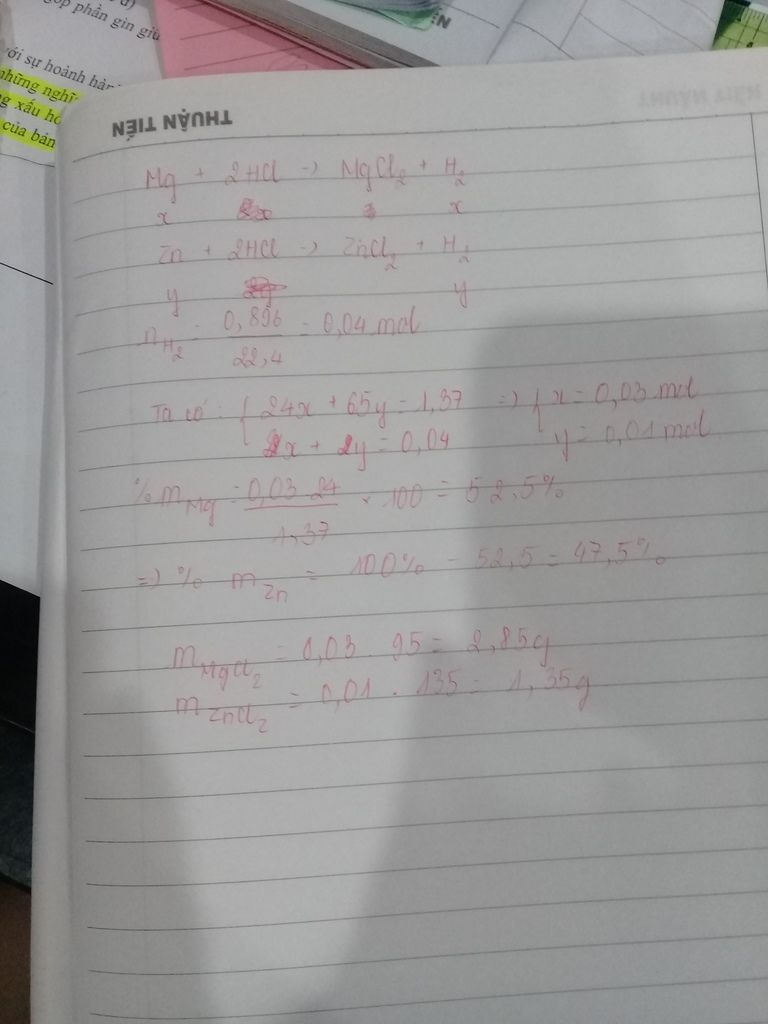 góp phần gìn giữ
với sự hoành
những
xấu
của bản
THUẬN TIẾN
Mg + 2HCl -> MgCl2 + H2
x x
Zn + 2HCl -> ZnCl2 + H2
y y
nH2 = 0,896 / 22,4 = 0,04 mol
Ta có : { 24x + 65y = 1,37 => { x = 0,03 mol
x + y = 0,04 y = 0,01 mol
% mMg = 0,03 . 24 / 1,37 . 100 = 52,5%
=> % mZn = 100% - 52,5 = 47,5%
mMgCl2 = 0,03 . 95 = 2,85g
mZnCl2 = 0,01 . 135 = 1,35g